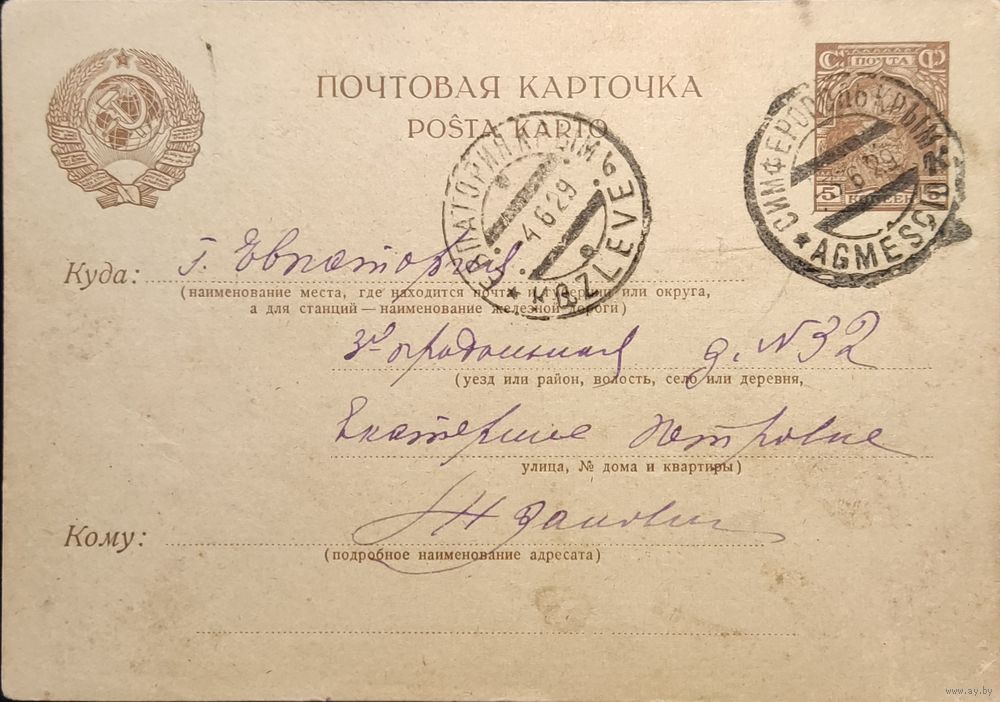 ПОЧТА
5 КОПЕЕК 5
ПОЧТОВАЯ КАРТОЧКА
POŜTA KARTO
СИМФЕРОПОЛЬ КРЫМ
6 29
AGMESÇID
ЕВПАТОРИЯ КРЫМ
4 6 29
KEZLEVE
Куда: г. Евпатория
(наименование места, где находится почта, и губернии или округа,
а для станций — наименование железной дороги)
3я продольная д. N 32
(уезд или район, волость, село или деревня,
Екатерине Петровне
улица, № дома и квартиры)
Кому:
(подробное наименование адресата)
www.ay.by